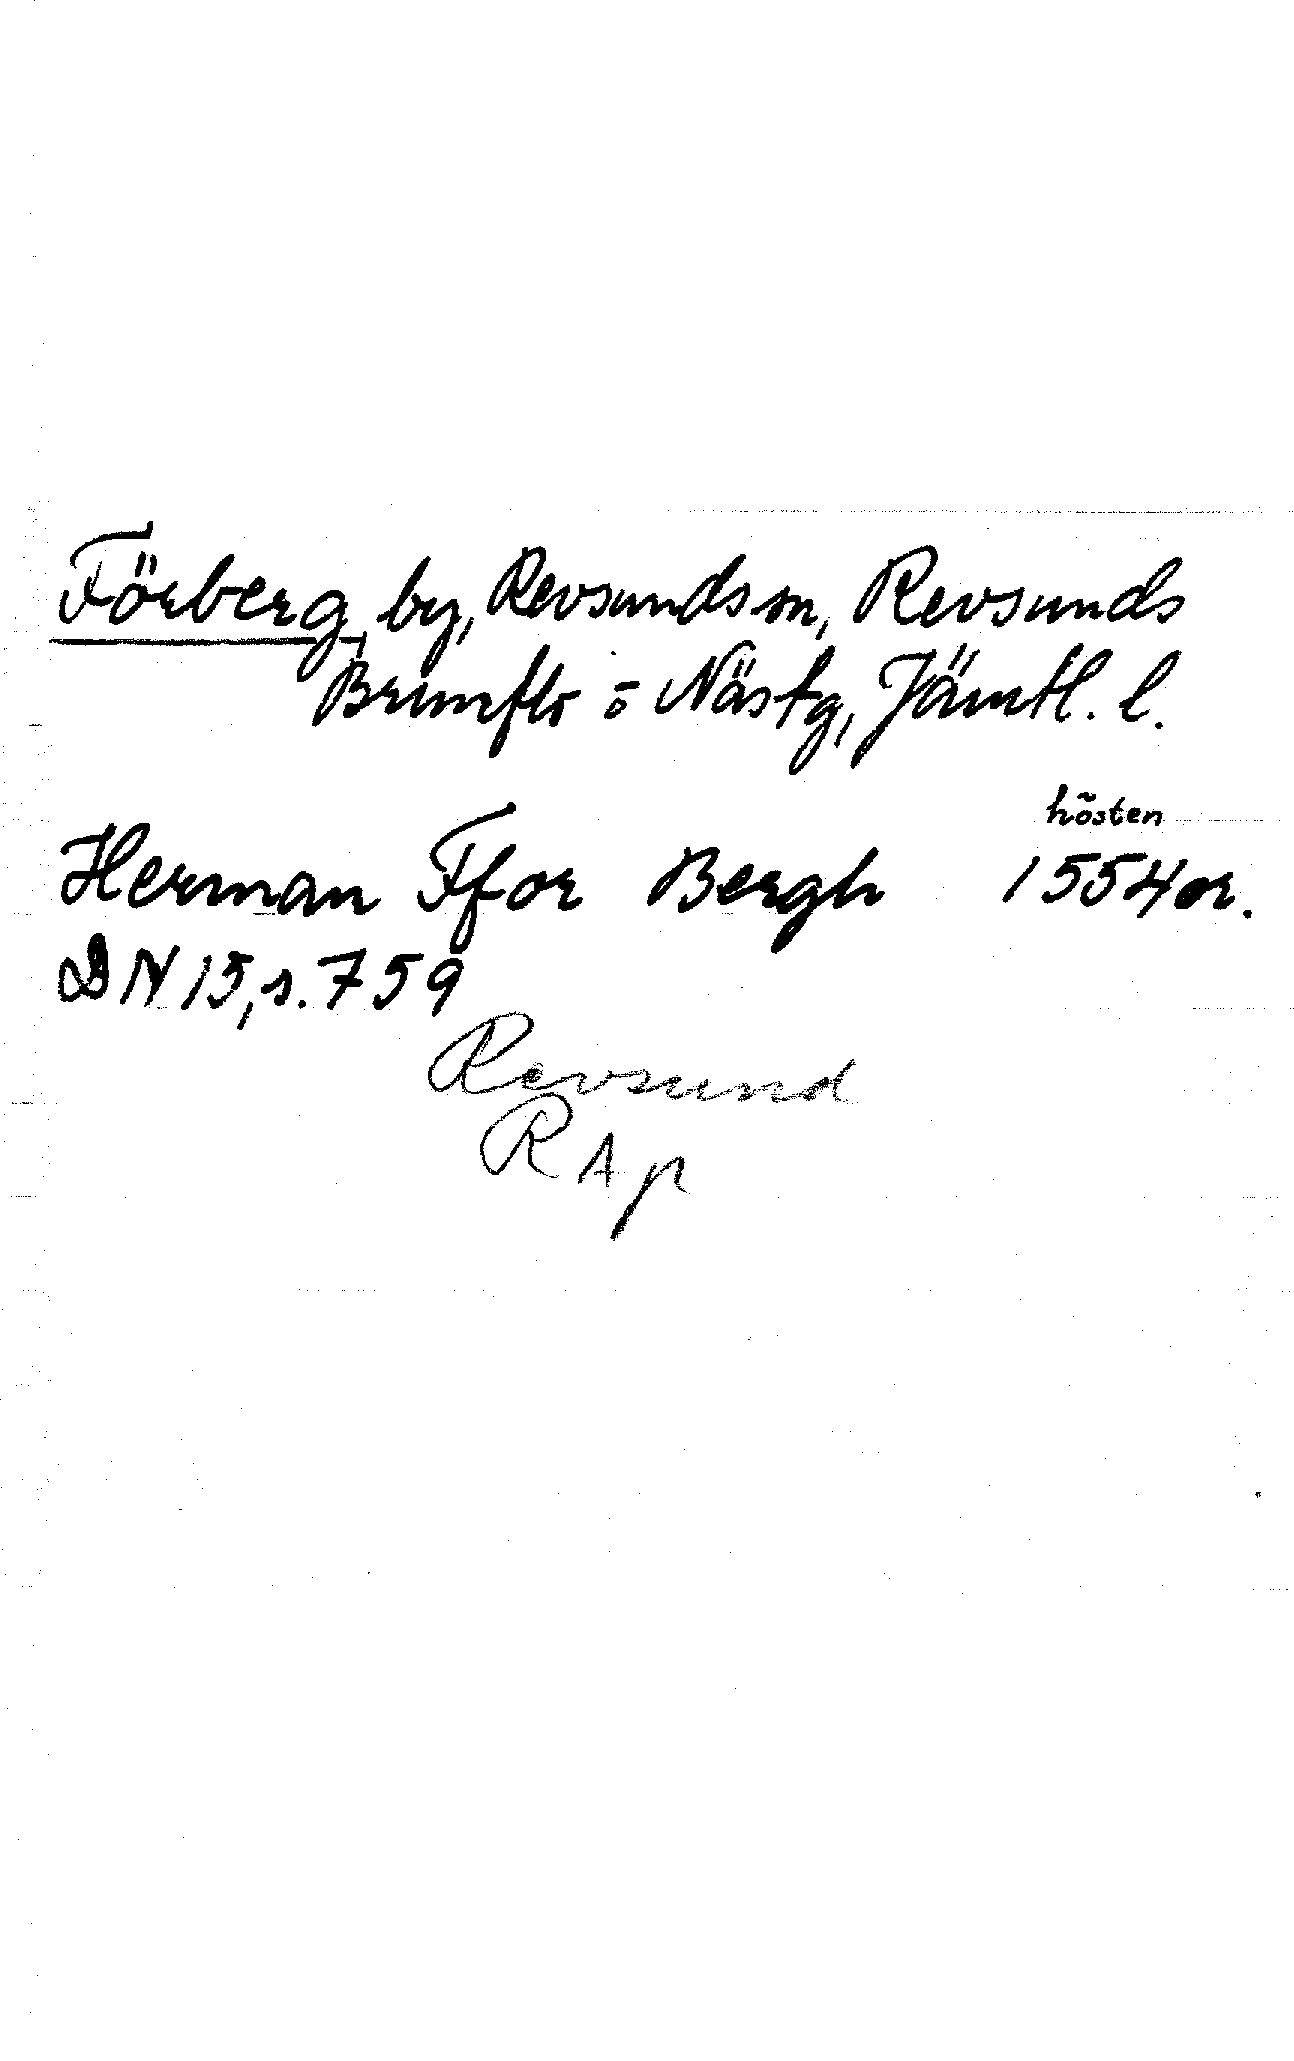 Förberg, by, Revsunds sn, Revsunds
Brunflo o Näs tg, Jämtl. l.
hösten
Herman Ffor Bergh 1554 or.
DN 15, s. 759
Revsund
R A p